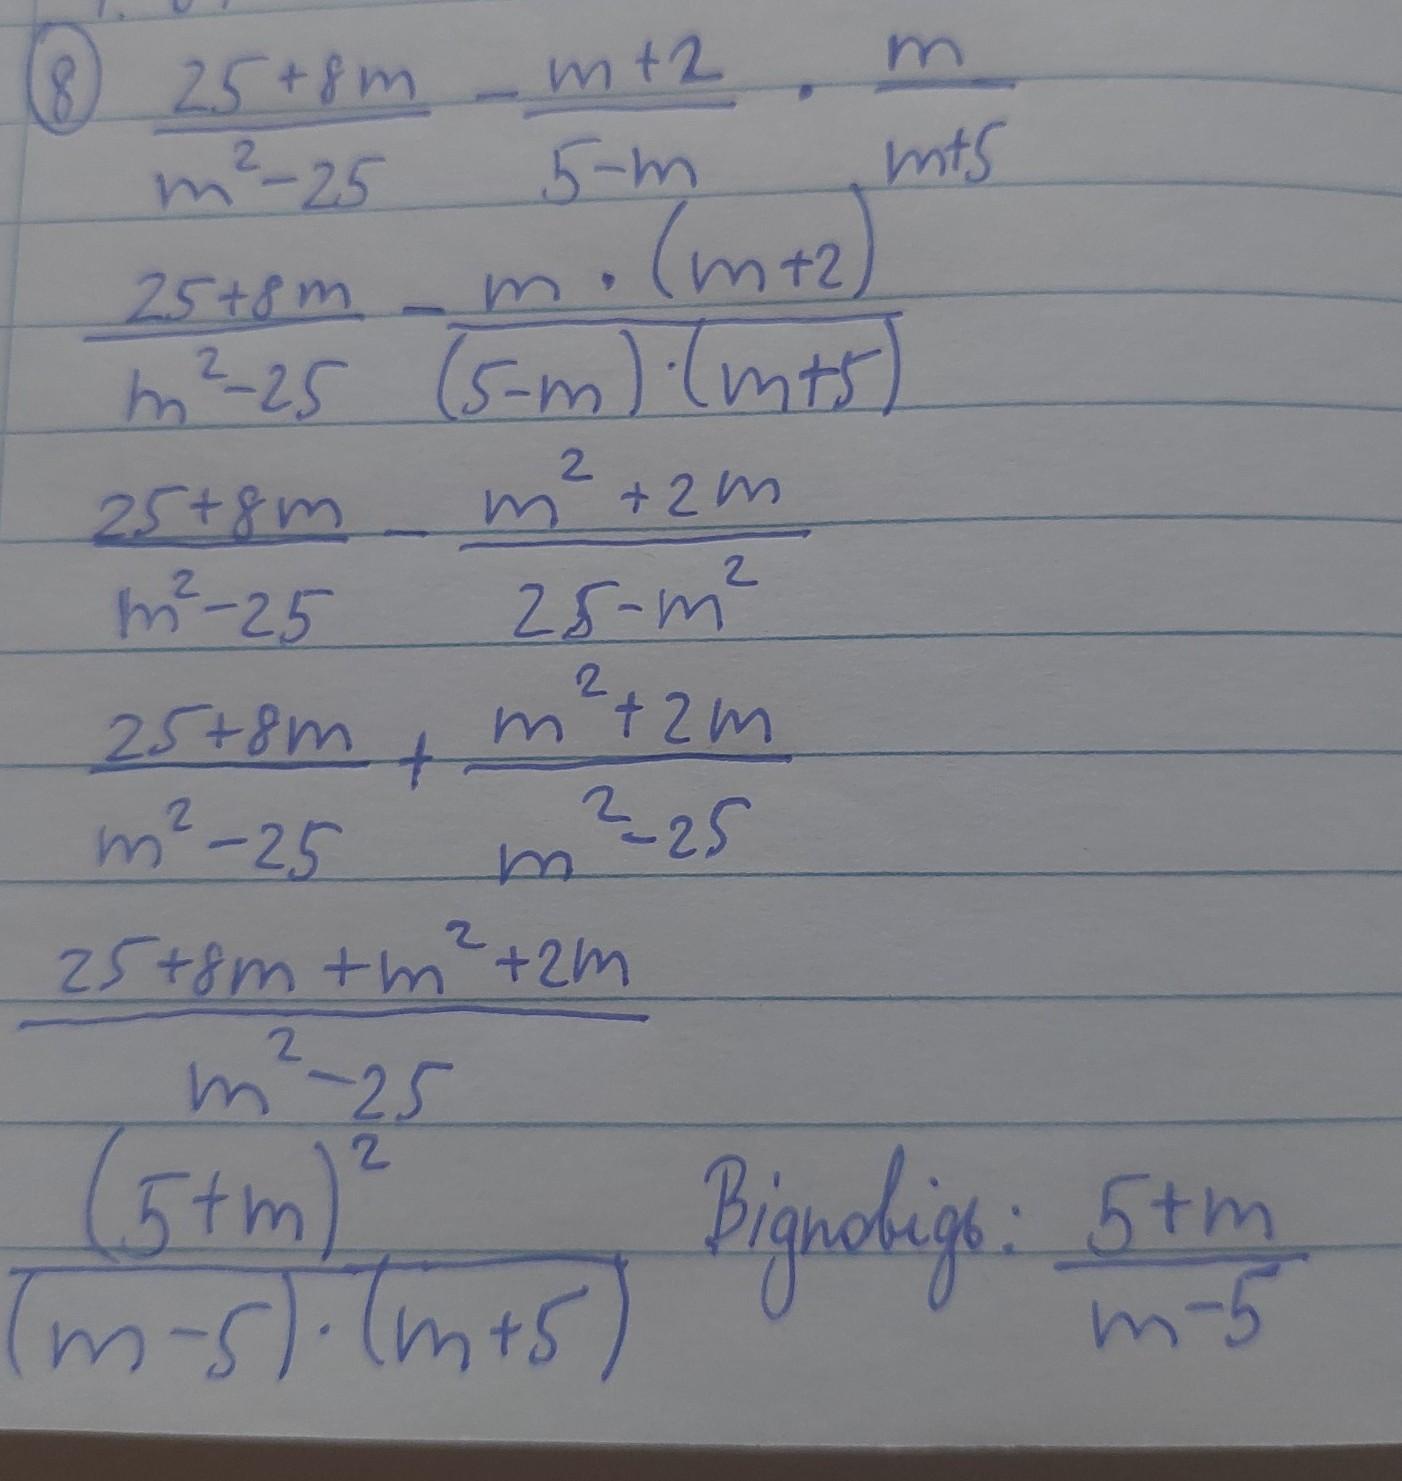 ⑧ (25+8m)/(m²-25) - (m+2)/(5-m) · m/(m+5)
(25+8m)/(m²-25) - (m·(m+2))/((5-m)·(m+5))
(25+8m)/(m²-25) - (m²+2m)/(25-m²)
(25+8m)/(m²-25) + (m²+2m)/(m²-25)
(25+8m+m²+2m)/(m²-25)
(5+m)²/((m-5)·(m+5)) Відповідь: (5+m)/(m-5)